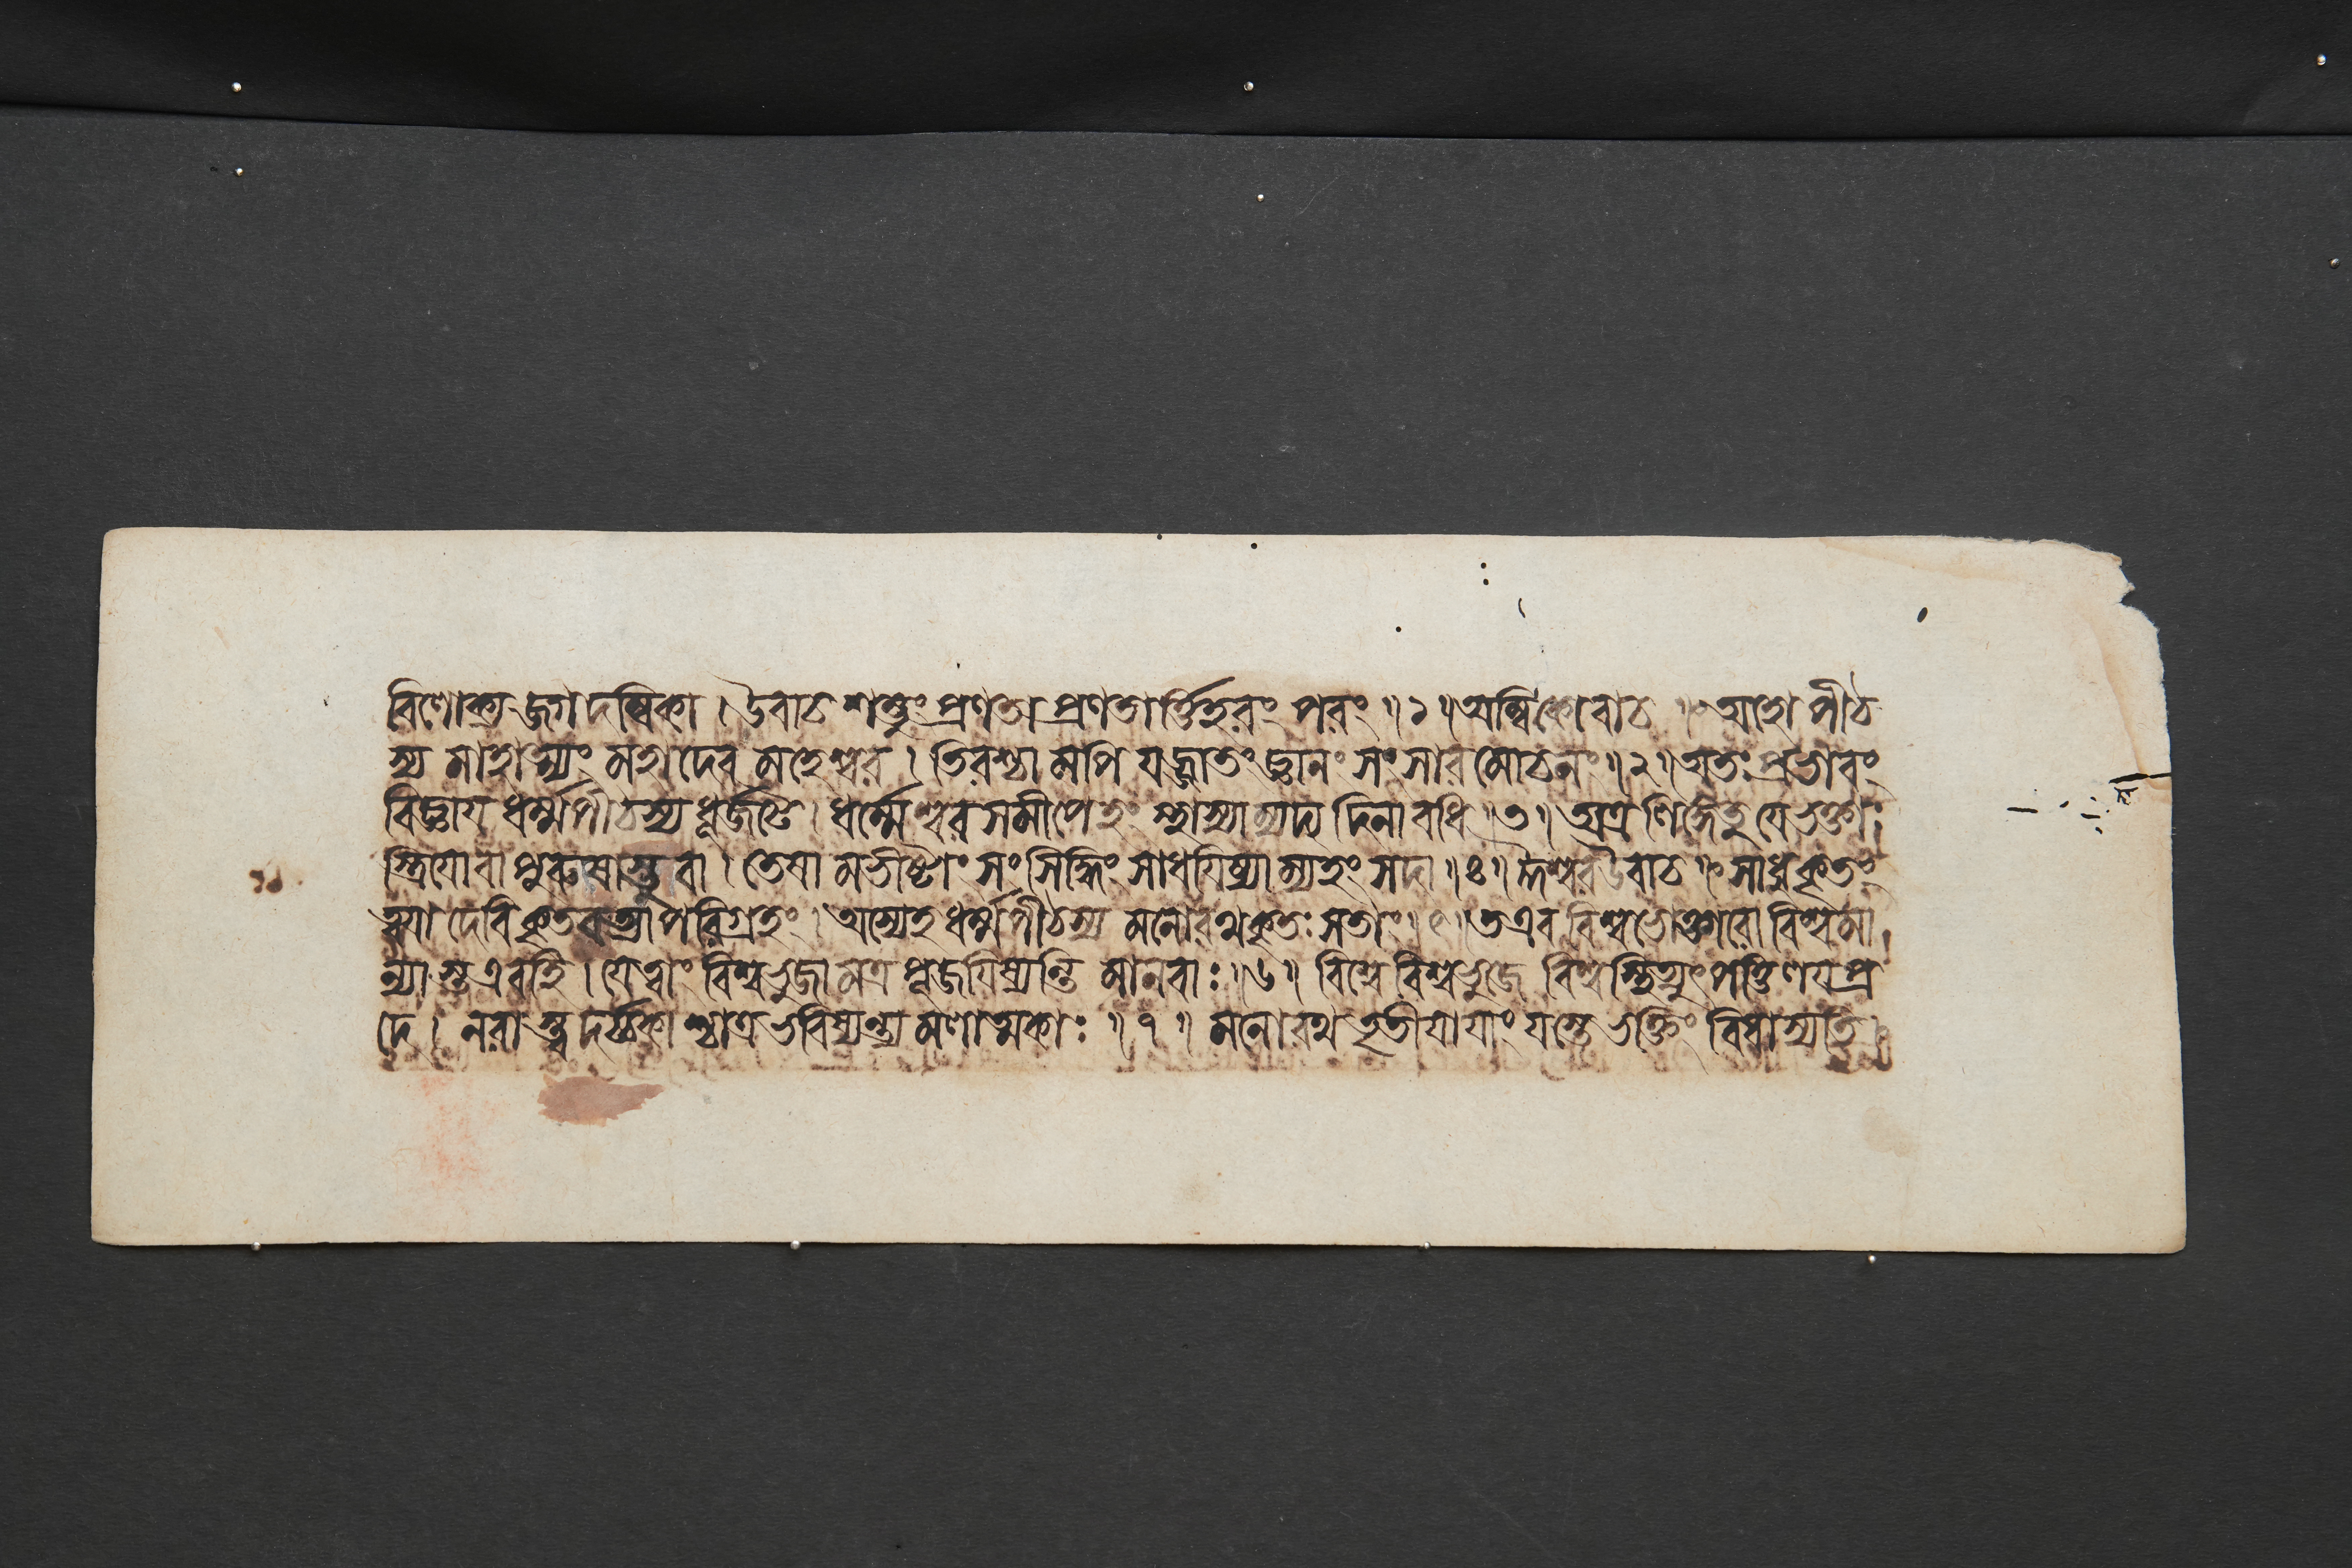 বিলোক্য জগদম্বিকা । উবাচ শম্ভুং প্রণতা প্রণতার্ত্তিহরং পরং ॥ ১ ॥ অম্বিকোবাচ ॥ অহো পীঠ
স্য মাহাত্ম্যং মহাদেব মহেশ্বর । তিরশ্চামপি যজ্জাতং জ্ঞানং সংসারমোচনং ॥ ২ ॥ অতঃ প্রভাবং
বিজ্ঞায ধর্ম্মপীঠস্য ধূর্জটে । ধর্ম্মেশ্বরসমীপেহং স্থাস্যাম্যদ্য দিনাবধি ॥ ৩ ॥ অত্র লিঙ্গেতু যে ভক্তাঃ
স্ত্রিযোবা পুরুষাস্তু বা । তেষামভীষ্টাং সংসিদ্ধিং সাধযিষ্যাম্যহং সদা ॥ ৪ ॥ ঈশ্বর উবাচ ॥ সাধুকৃতং
ত্বযা দেবি কৃতবত্যা পরিগ্রহং । অস্যেহ ধর্ম্মপীঠস্য মনোরথকৃতঃ সতাং ॥ ৫ ॥ ত এব বিশ্বভোক্তারো বিশ্বমা
ন্যাস্ত এবহি । যে ত্বাং বিশ্বভুজামত্র পূজযিষ্যন্তি মানবাঃ ॥ ৬ ॥ বিশ্বে বিশ্বভুজে বিশ্বস্থিত্যুৎপত্তিলযপ্র
দে । নরাস্ত্বদর্চ্চকাশ্চাত্র ভবিষ্যন্ত্যমলাত্মকাঃ ॥ ৭ ॥ মনোরথতৃতীযাযাং যস্তে ভক্তিং বিধাস্যতি ।